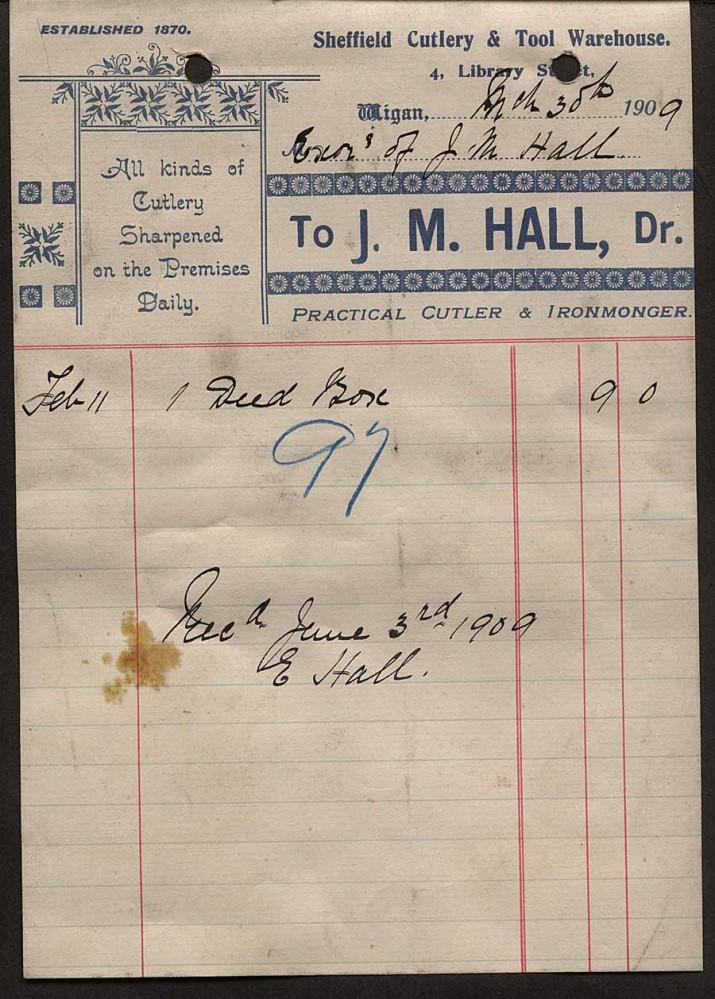 ESTABLISHED 1870.
Sheffield Cutlery & Tool Warehouse.
4, Library Street,
Wigan, Mch 30th 1909
Exors of J. M. Hall
To J. M. HALL, Dr.
PRACTICAL CUTLER & IRONMONGER.
All kinds of
Cutlery
Sharpened
on the Premises
Daily.
Feb 11 1 Deed Box 9 0
97
Recd June 3rd 1909
E Hall.